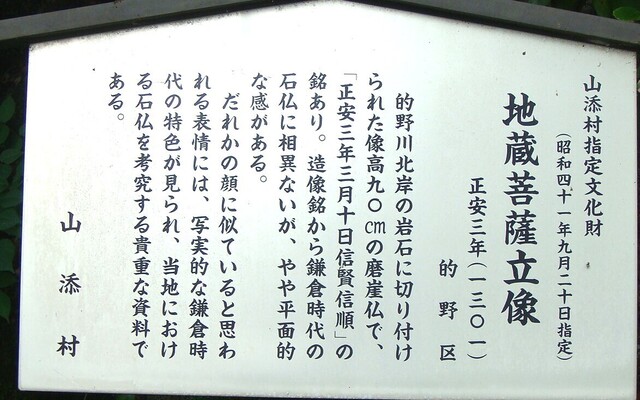 山添村指定文化財
（昭和四十一年九月二十日指定）
地蔵菩薩立像
正安三年（一三〇一）
的野区
的野川北岸の岩石に切り付け
られた像高九〇cmの磨崖仏で、
「正安三年三月十日信賢信順」の
銘あり。造像銘から鎌倉時代の
石仏に相異ないが、やや平面的
な感がある。
だれかの顔に似ていると思わ
れる表情には、写実的な鎌倉時
代の特色が見られ、当地におけ
る石仏を考究する貴重な資料で
ある。
山添村